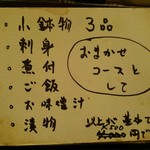 ・小鉢物 3品
・刺身
・煮付
・ご飯
・お味噌汁
・漬物
おまかせ
コースと
して
以上が
円で